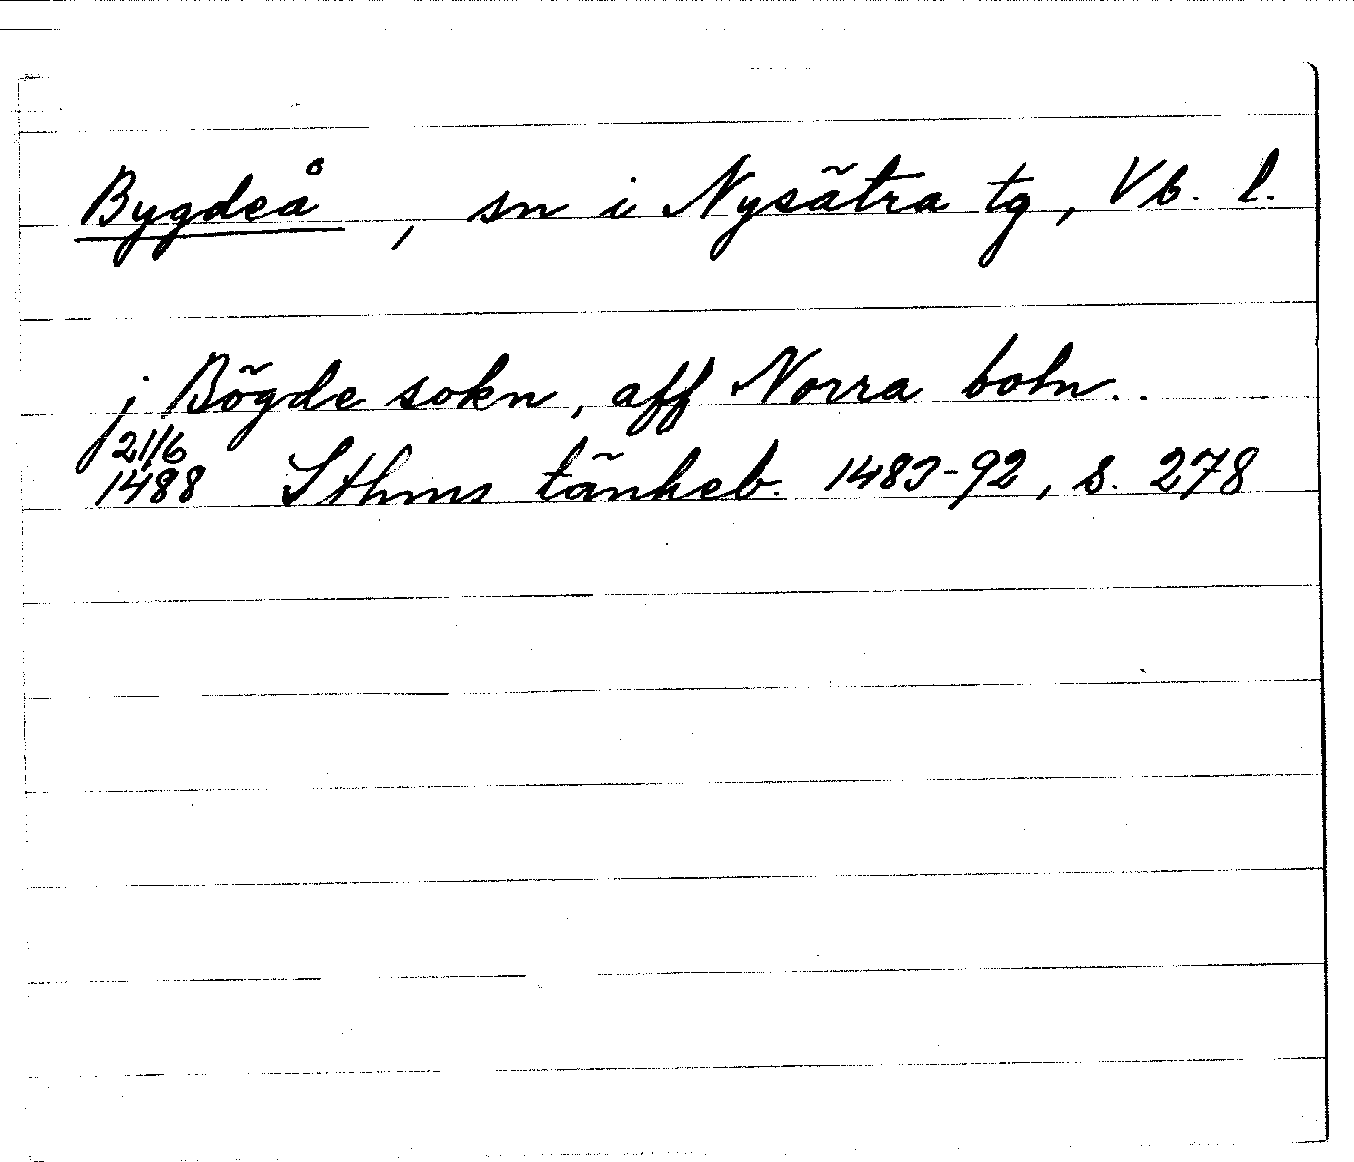 Bygdeå, sn i Nysätra tg, Vb. l.
j Bögde sokn, aff Norra botn..
21/6
1488 Sthms tänkeb. 1483-92, s. 278